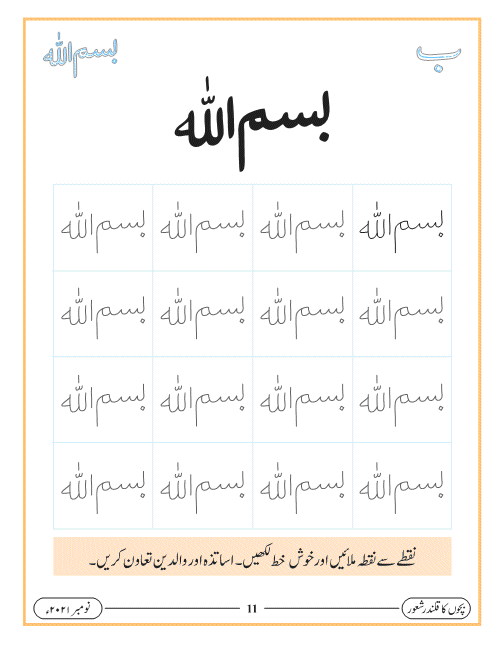 ب بسم اللہ
بسم اللہ
بسم اللہ بسم اللہ بسم اللہ بسم اللہ
بسم اللہ بسم اللہ بسم اللہ بسم اللہ
بسم اللہ بسم اللہ بسم اللہ بسم اللہ
بسم اللہ بسم اللہ بسم اللہ بسم اللہ
نقطے سے نقطہ ملائیں اور خوش خط لکھیں۔ اساتذہ اور والدین تعاون کریں۔
بچوں کا قلندر شعور 11 نومبر ۲۰۲۱ء